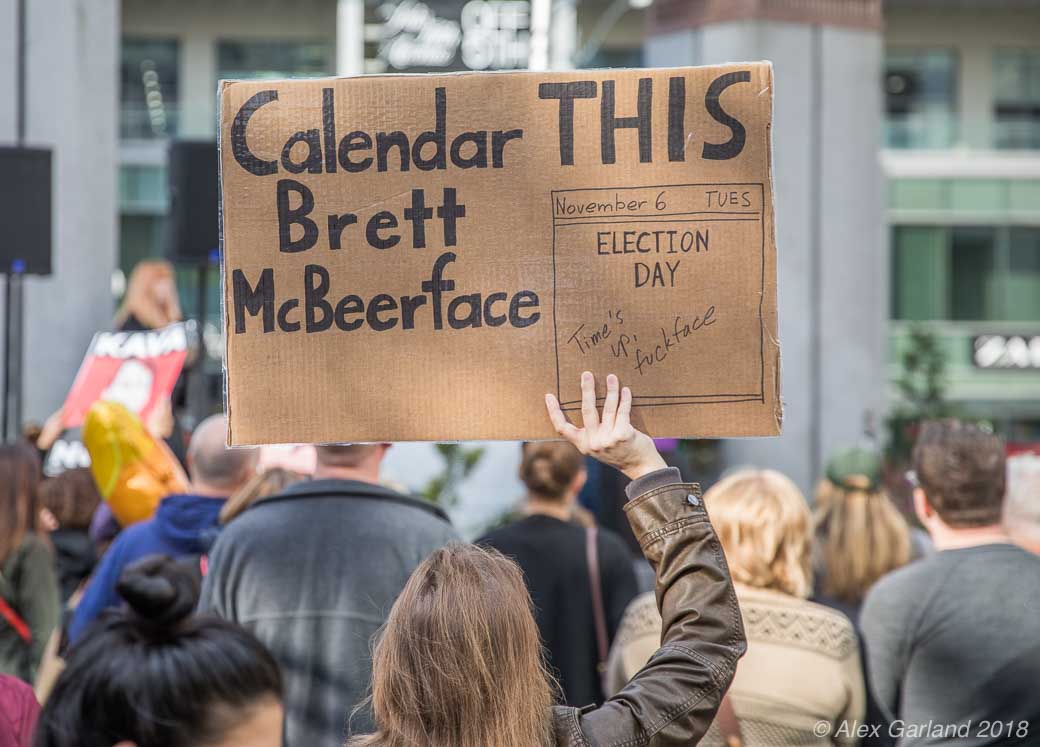 OFF
5TH
Calendar THIS
Brett
McBeerface
November 6 TUES
ELECTION
DAY
Time's
up,
fuckface
KAVA
© Alex Garland 2018